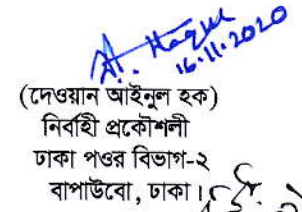 A. Haque
16.11.2020
(দেওয়ান আইনুল হক)
নির্বাহী প্রকৌশলী
ঢাকা পওর বিভাগ-২
বাপাউবো, ঢাকা।